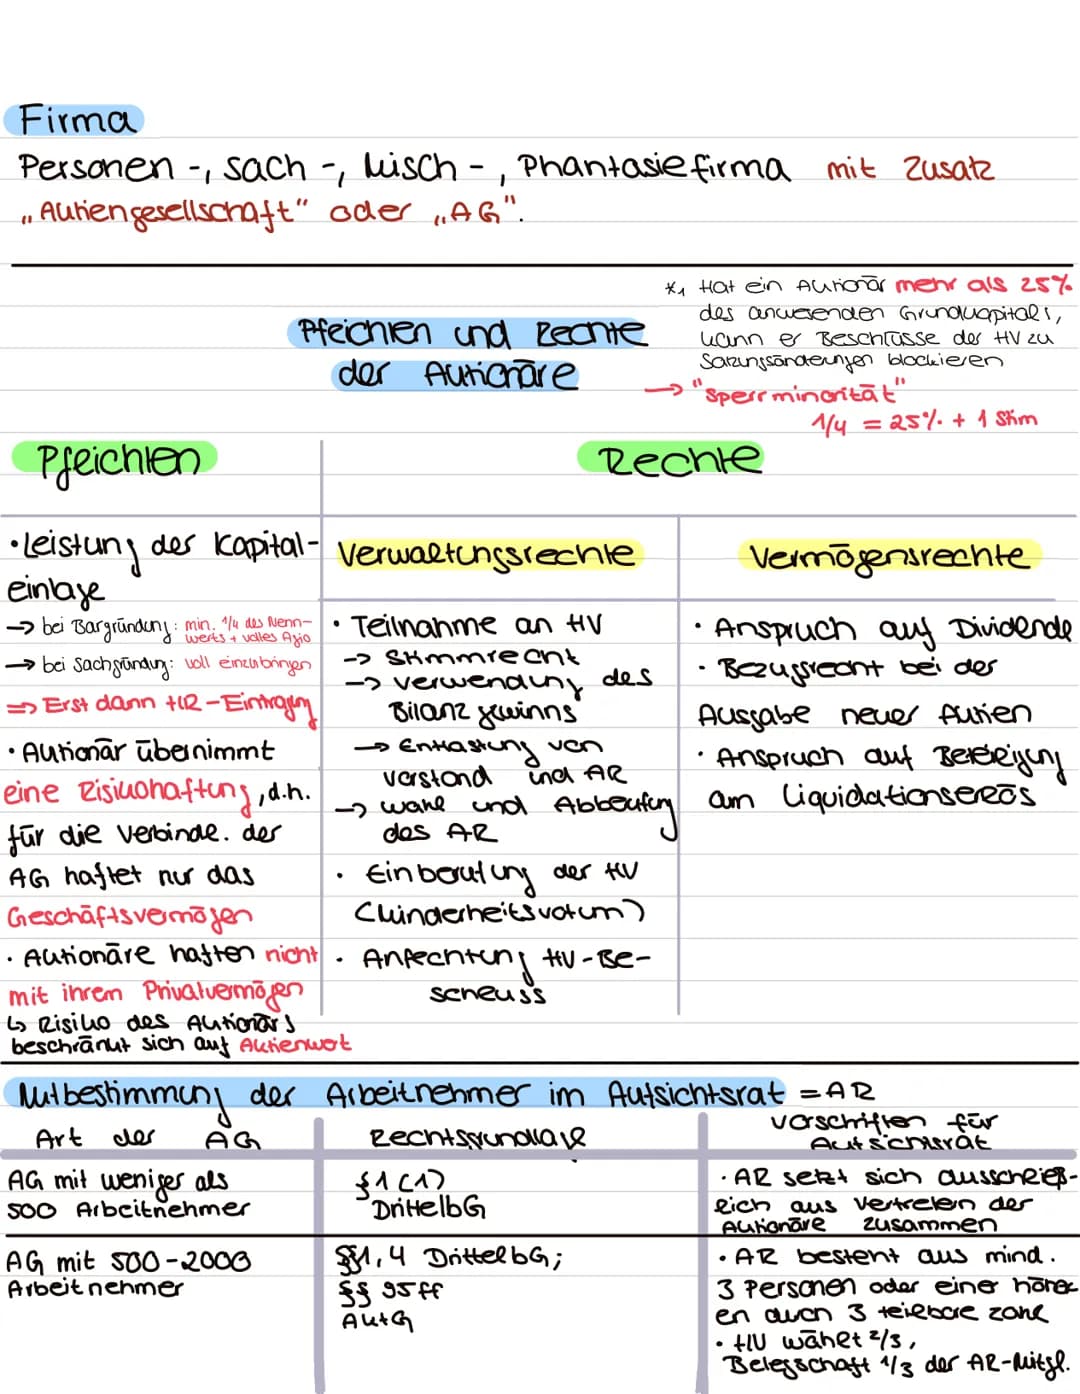 Firma
Personen -, Sach -, Misch - , Phantasiefirma mit Zusatz
„Aktiengesellschaft" oder „AG".
*1 Hat ein Aktionär mehr als 25%
des anwesenden Grundkapitals,
kann er Beschlüsse der HV zu
Satzungsänderungen blockieren
→ "Sperrminorität"
1/4 = 25% + 1 Stim
Pflichten und Rechte
der Aktionäre
Pflichten
Rechte
• Leistung der Kapital-
einlage
→ bei Bargründung: min. 1/4 des Nenn-
werts + volles Agio
→ bei Sachgründung: voll einzubringen
⇒ Erst dann HR-Eintragung
• Aktionär übernimmt
eine Risikohaftung, d.h.
für die Verbindl. der
AG haftet nur das
Geschäftsvermögen
• Aktionäre haften nicht
mit ihrem Privatvermögen
↳ Risiko des Aktionärs
beschränkt sich auf Aktienwert
Verwaltungsrechte
• Teilnahme an HV
→ Stimmrecht
→ Verwendung des
Bilanzgewinns
→ Entlastung von
Vorstand und AR
→ Wahl und Abberufung
des AR
• Einberufung der HV
(Minderheitsvotum)
• Anfechtung HV-Be-
schluss
Vermögensrechte
• Anspruch auf Dividende
• Bezugsrecht bei der
Ausgabe neuer Aktien
• Anspruch auf Beteiligung
am Liquidationserlös
Mitbestimmung der Arbeitnehmer im Aufsichtsrat = AR
Art der AG
Rechtsgrundlage
Vorschriften für
Aufsichtsrat
AG mit weniger als
500 Arbeitnehmer
§1 (1)
DrittelbG
• AR setzt sich ausschließ-
lich aus Vertretern der
Aktionäre zusammen
AG mit 500-2000
Arbeitnehmer
§§1,4 DrittelbG;
§§ 95ff
AktG
• AR besteht aus mind.
3 Personen oder einer höher
en durch 3 teilbare Zahl
• HV wählt 2/3,
Belegschaft 1/3 der AR-Mitgl.